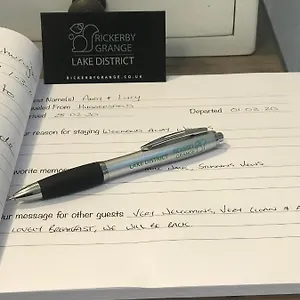 RICKERBY
GRANGE
LAKE DISTRICT
RICKERBYGRANGE.CO.UK
Name(s) Andy + Lucy
velled From
rrived 28·02·20 Departed 01·03·20
ur reason for staying WEEKEND AWAY
LAKE DISTRICT
avorite memor WALK, STUNNING VIEWS
ur message for other guests VERY WELCOMING, VERY CLEAN + A
LOVELY BREAKFAST, WE WILL BE BACK